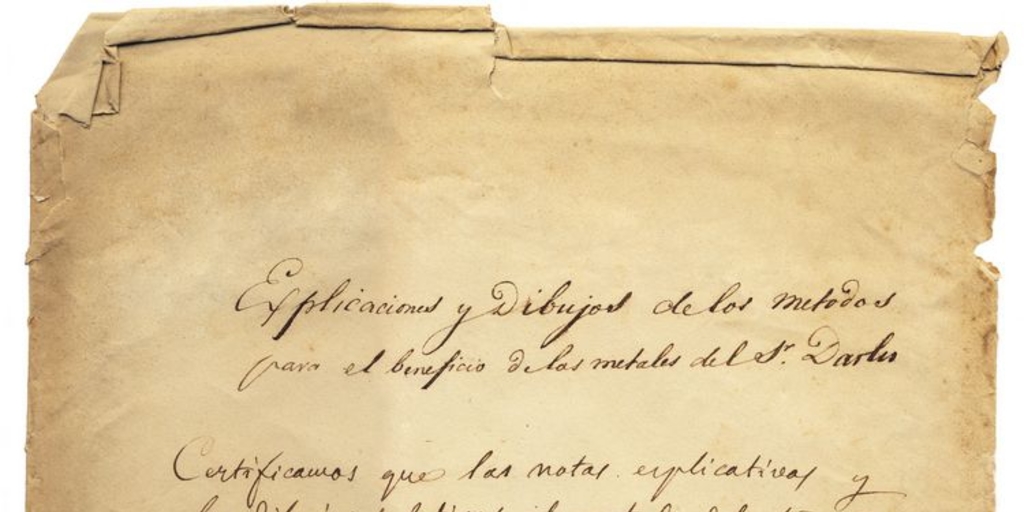 Explicaciones y Dibujos de los metodos
para el beneficio de las metales del Sr. Darlu
Certificamos que las notas explicativas y